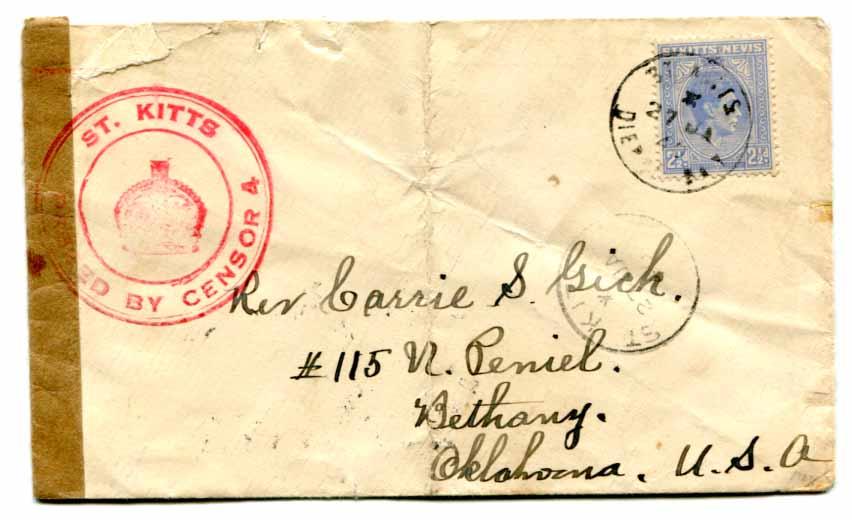 ST. KITTS NEVIS
2½ 2½
ST. KITTS
ED BY CENSOR 4
Rev Carrie S. Gich.
#115 N. Peniel.
Bethany.
Oklahoma. U.S.A
ST KI